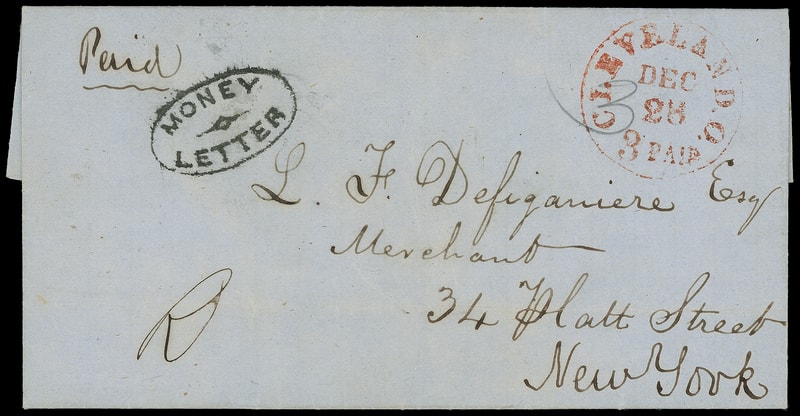 Paid
MONEY
LETTER
CLEVELAND.O.
DEC
28
3 PAID
3
L. F. Defiganiere Esq
Merchant
34 Platt Street
New York
R